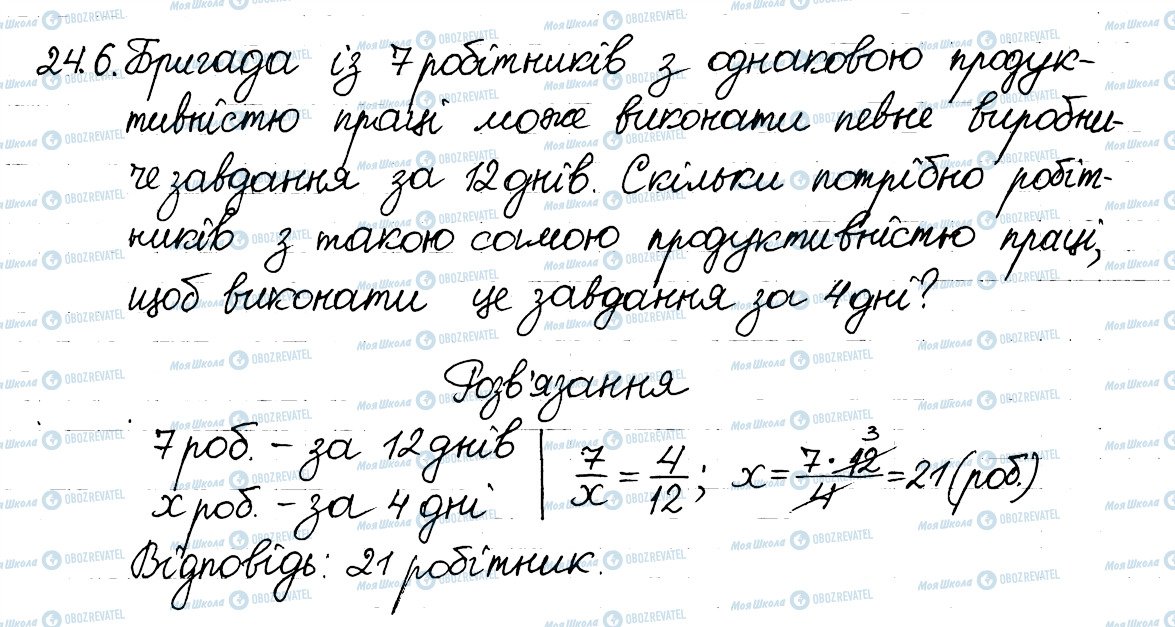 24.6. Бригада із 7 робітників з однаковою продук-
тивністю праці може виконати певне виробни-
че завдання за 12 днів. Скільки потрібно робіт-
ників з такою самою продуктивністю праці,
щоб виконати це завдання за 4 дні?
Розв'язання
7 роб. – за 12 днів
x роб. – за 4 дні
7/x = 4/12; x = 7·12/4 = 21 (роб.)
3
Відповідь: 21 робітник.
Моя Школа OBOZREVATEL